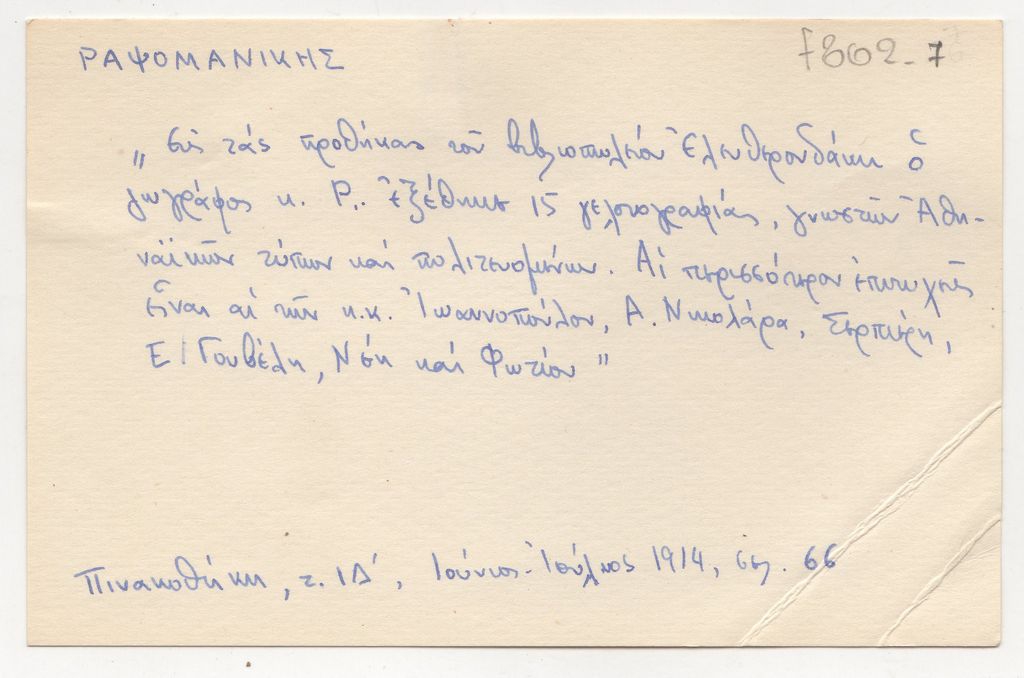 ΡΑΨΟΜΑΝΙΚΗΣ
7802-7
„ Εἰς τάς προθήκας τοῦ βιβλιοπωλείου Ἐλευθερουδάκη ὁ
ζωγράφος κ. Ρ.. ἐξέθηκε 15 γελοιογραφίας, γνωστῶν Ἀθη-
ναϊκῶν τύπων καί πολιτευομένων. Αἱ περισσότερον ἐπιτυχεῖς
εἶναι αἱ τῶν κ.κ. Ἰωαννοπούλου, Α. Νικολάρα, Σερπιέρη,
Ε/Γουβέλη, Νέη καί Φωτίου "
Πινακοθήκη, τ. ΙΔ', Ἰούνιος-Ἰούλιος 1914, σελ. 66